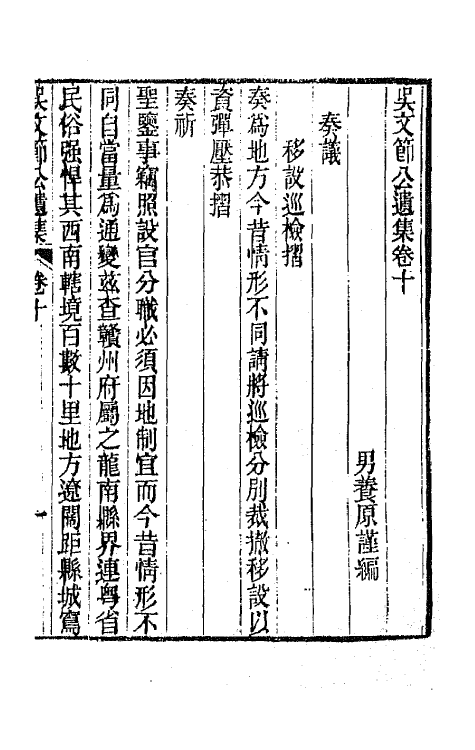 吳文節公遺集卷十
男養原謹編
奏議
移設巡檢摺
奏為地方今昔情形不同請將巡檢分別裁撤移設以
資彈壓恭摺
奏祈
聖鑒事竊照設官分職必須因地制宜而今昔情形不
同自當量為通變茲查贛州府屬之龍南縣界連粵省
民俗强悍其西南轄境百數十里地方遼闊距縣城窵
吳文節公遺集 卷十 一